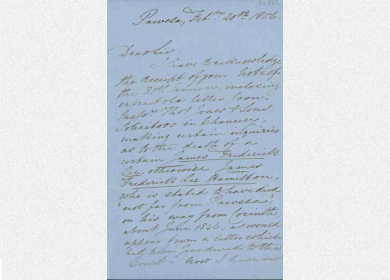 Pawesa, Feb. 20th, 1856.
Dear Sir
I have to acknowledge
the receipt of your note of
the 31st enclosing
extract of a letter from
Thos. Jones & Sons
Solicitors in Chancery,
making certain inquiries
as to the death of a
certain James Frederick
Lee otherwise James
Frederick Lee Hamilton,
who is stated to have died
"not far from Pawesa,"
on his way from
about June 1846, as would
appear from a letter which
had been to the
Court. Now I have no